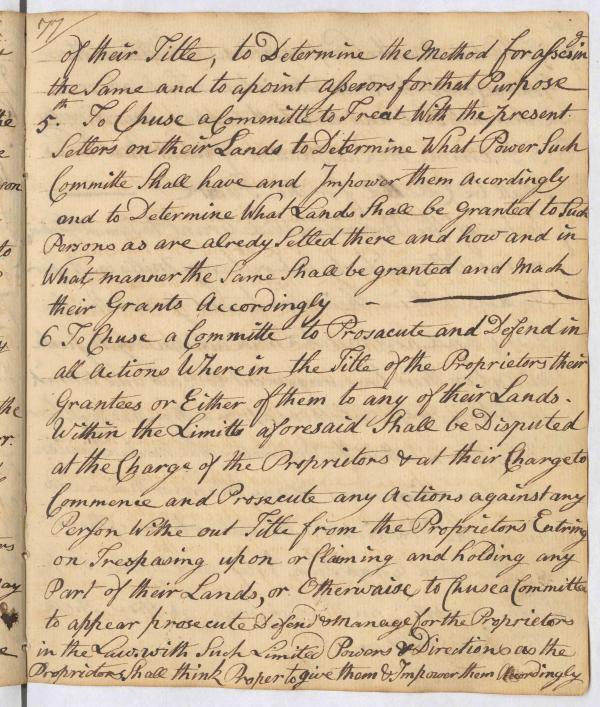 77/
of their Title, to Determine the Method for assesin
the Same and to apoint assesors for that Purpose
5.th To Chuse a Committe to Treat With the present
Setlers on their Lands to Determine What Power Such
Committe Shall have and Impower them Accordingly
and to Determine What Lands Shall be Granted to Such
Persons as are alredy Setled there and how and in
What manner the Same Shall be granted and Mack
their Grants Accordingly
6 To Chuse a Committe to Prosacute and Defend in
all Actions Wherein the Title of the Proprietors their
Grantees or Either of them to any of their Lands.
Within the Limitts aforesaid Shall be Disputed
at the Charge of the Proprietors & at their Charge to
Commence and Prosecute any Actions against any
Person Withe out Title from the Proprietors Entring
on Trespasing upon or Claiming and holding any
Part of their Lands, or Otherwaise to Chuse a Committee
to appear prosecute Defend & Manage for the Proprietors
in the Law with Such Limited Powers & Directions as the
Proprietors Shall think Proper to give them & Impower them Accordingly